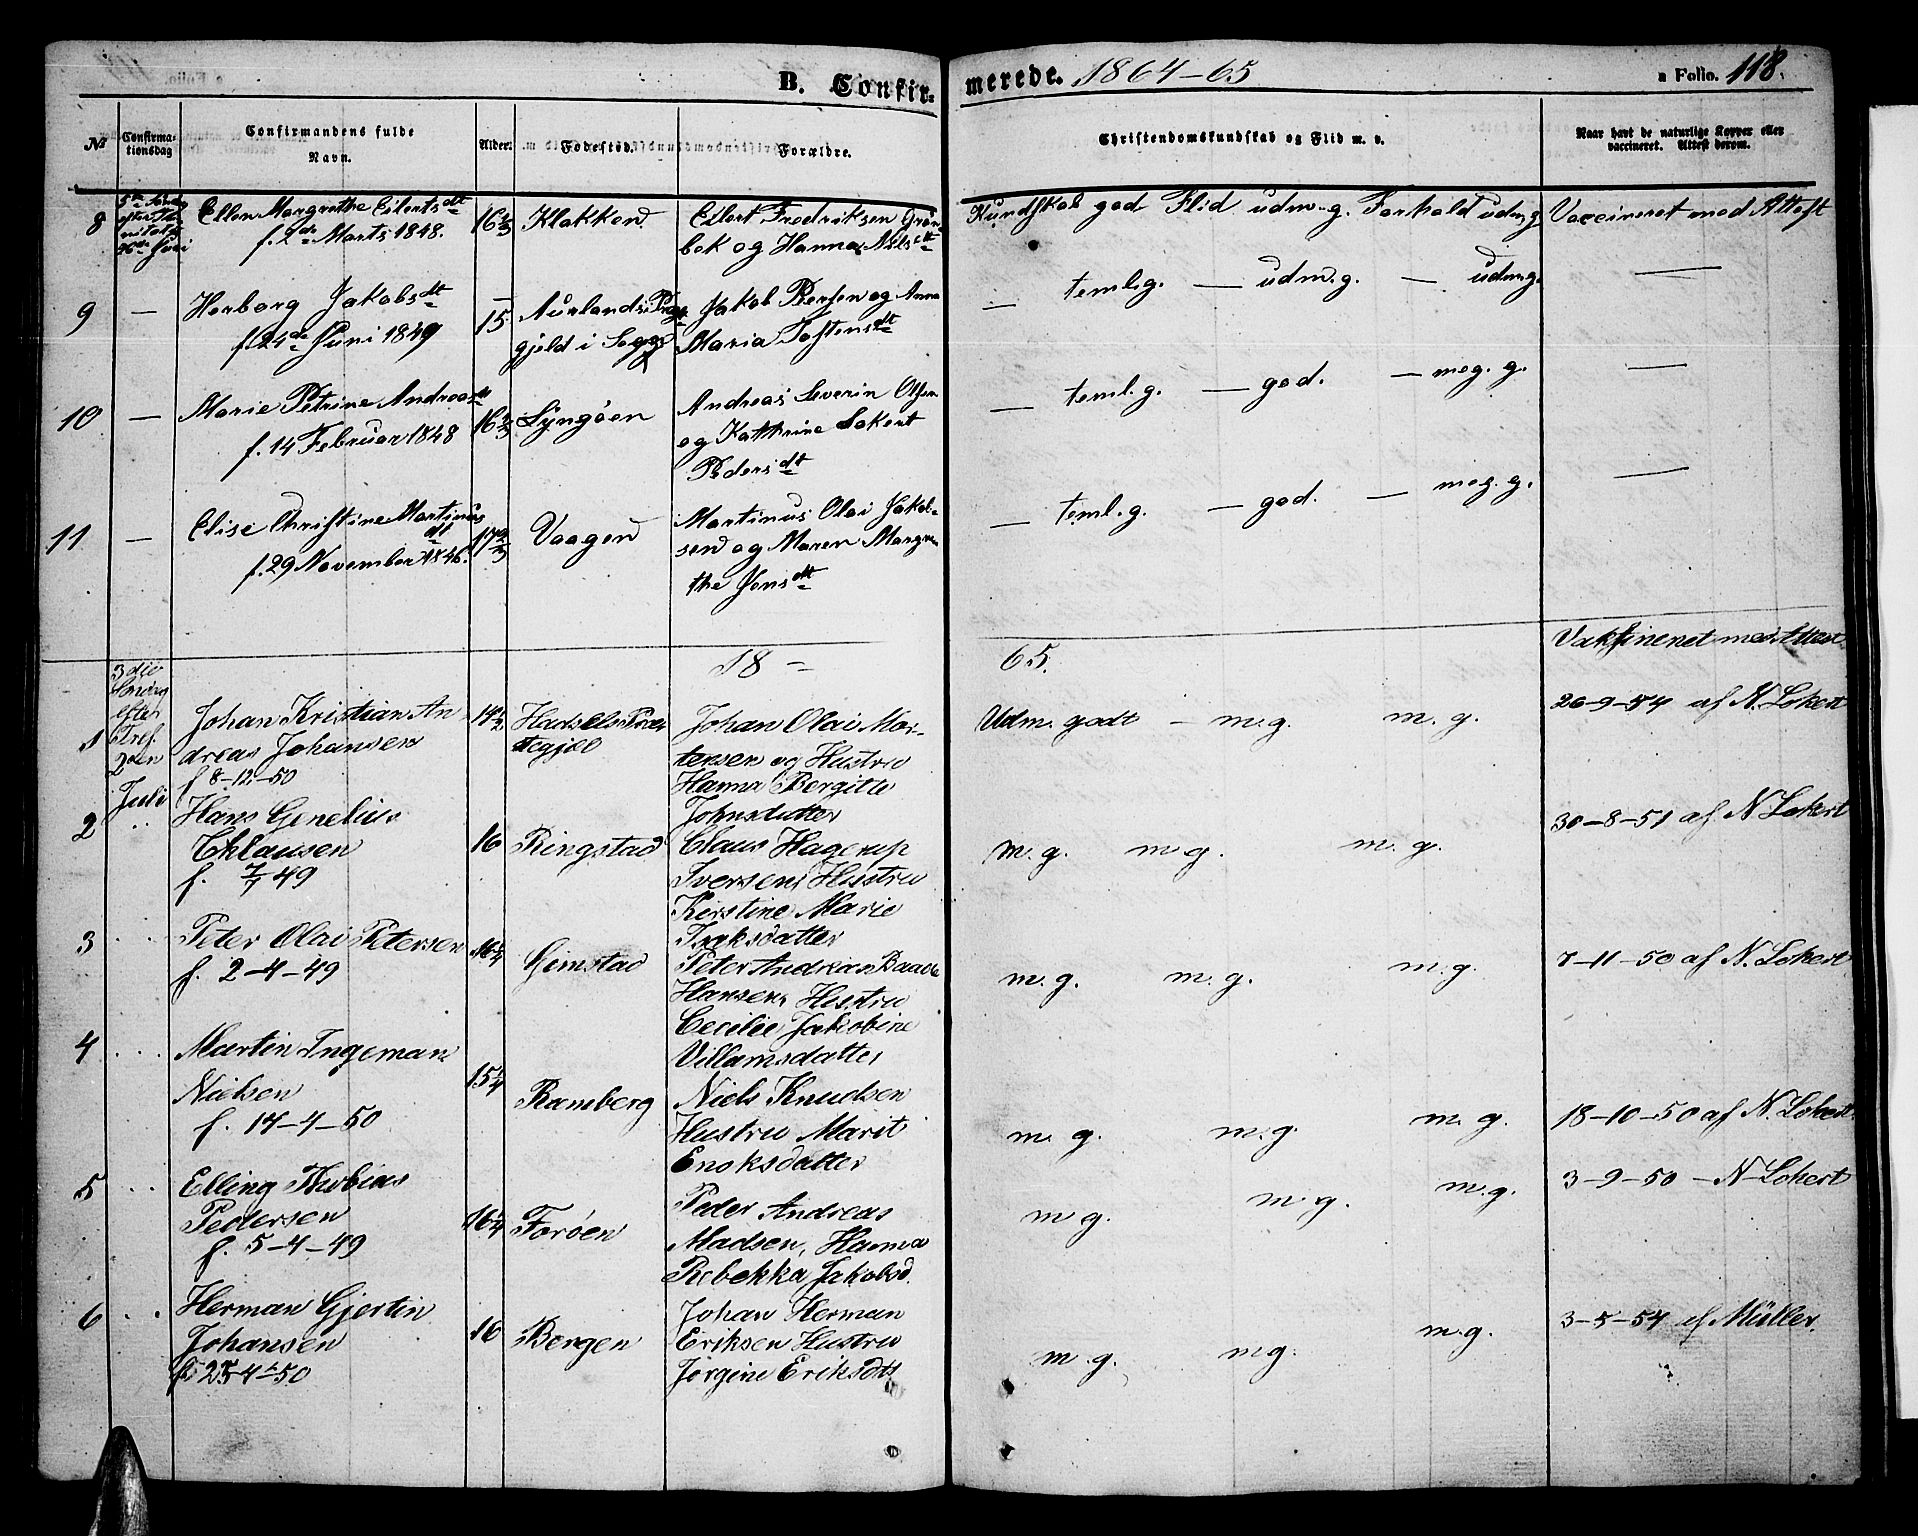 B. Confir-
merede. 1864-65
a Folio. 118.
№ Confirma-
tionsdag
Confirmandens fulde
Navn.
Alder.
Fødested.
Forældre.
Christendomskundskab og Flid m. v.
Naar havt de naturlige Kopper eller
vaccineret. Attest derom.
8
Ellen Margrethe Eilertsdt
f. 2de Marts 1848.
16 1/3
Klakken
Eilert Fredriksen Grøn-
bek og Hanna Nilsdt
Kundskab god Flid udm. g. Forhold udm.g
Vaccineret med Attest
9 —
Herborg Jakobsdt
f. 24de Juni 1849
15
Aurlands Præste-
gjeld i Sogn
Jakob Persen og Anna
Maria Toftensdt
— teml. g. — udm. g. — udm.g. —
10 —
Marie Petrine Andreasdt
f. 14 Februar 1848
16 1/3
Lyngøen
Andreas Severin Olsen
og Kathrine Lokert
Pedersdt
— teml. g. — god. — meg. g. —
11 —
Elise Christine Martinus
dt
f. 29 November 1846.
17 2/3
Vaagen
Martinus Olai Jakob-
sen og Maren Margre-
the Jensdt
— teml. g. — god. — meg. g. —
18 — 65.
Vaksineret med Attest
3die
Søndag
efter
Tref.
2den
Juli
1
Johan Kristian An
dreas Johansen
f 8-12-50
14 1/2
Hadsels Præs
tegjel
Johan Olai Mor-
tensen og Hustru
Hanna Bergitte
Johnsdatter
Udm. godt - m. g. m. g.
26-9-54 af N. Lokert
2
Hans Genelius
Chlausen
f. 7/7 49
16
Ringstad
Claus Hagerup
Iversen, Hustru
Kirstine Marie
Isaksdatter
m. g. m g. m. g.
30-8-51 af N Lokert
3
Peter Olai Petersen
f. 2-4-49
16 1/4
Gimstad
Peter Andreas Baade
Hansen, Hustru
Cecilie Jakobine
Villamsdatter
m. g. m. g. m. g.
7-11-50 af N. Lokert
4
Martin Ingeman
Nielsen
f. 17-4-50
15 1/4
Ramberg
Niels Knudsen
Hustru Marit
Enoksdatter
m. g. m. g. m. g.
18-10-50 af N. Lokert
5
Elling Thobias
Pedersen
f. 5-4-49
16 1/4
Forøen
Peder Andreas
Madsen, Hanna
Rebekka Jakobsd.
m g. m. g. m. g.
3-9-50 - N Lokert
6
Herman Gjertin
Johansen
f 25-4-50
16
Bergen
Johan Herman
Eriksen Hustru
Jørgine Eriksdtt
m. g. m g. m. g.
3-5-54 af Müller.